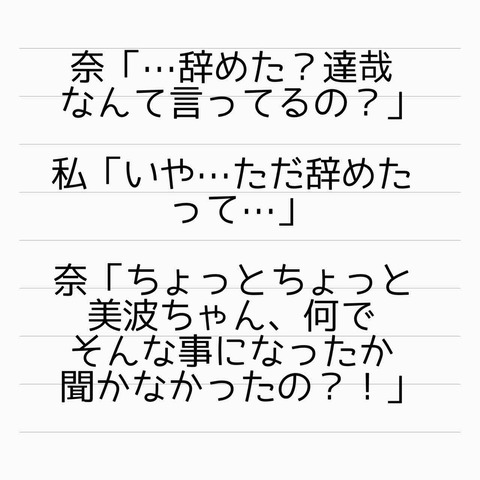 奈「…辞めた？達哉
なんて言ってるの？」
私「いや…ただ辞めた
って…」
奈「ちょっとちょっと
美波ちゃん、何で
そんな事になったか
聞かなかったの？！」